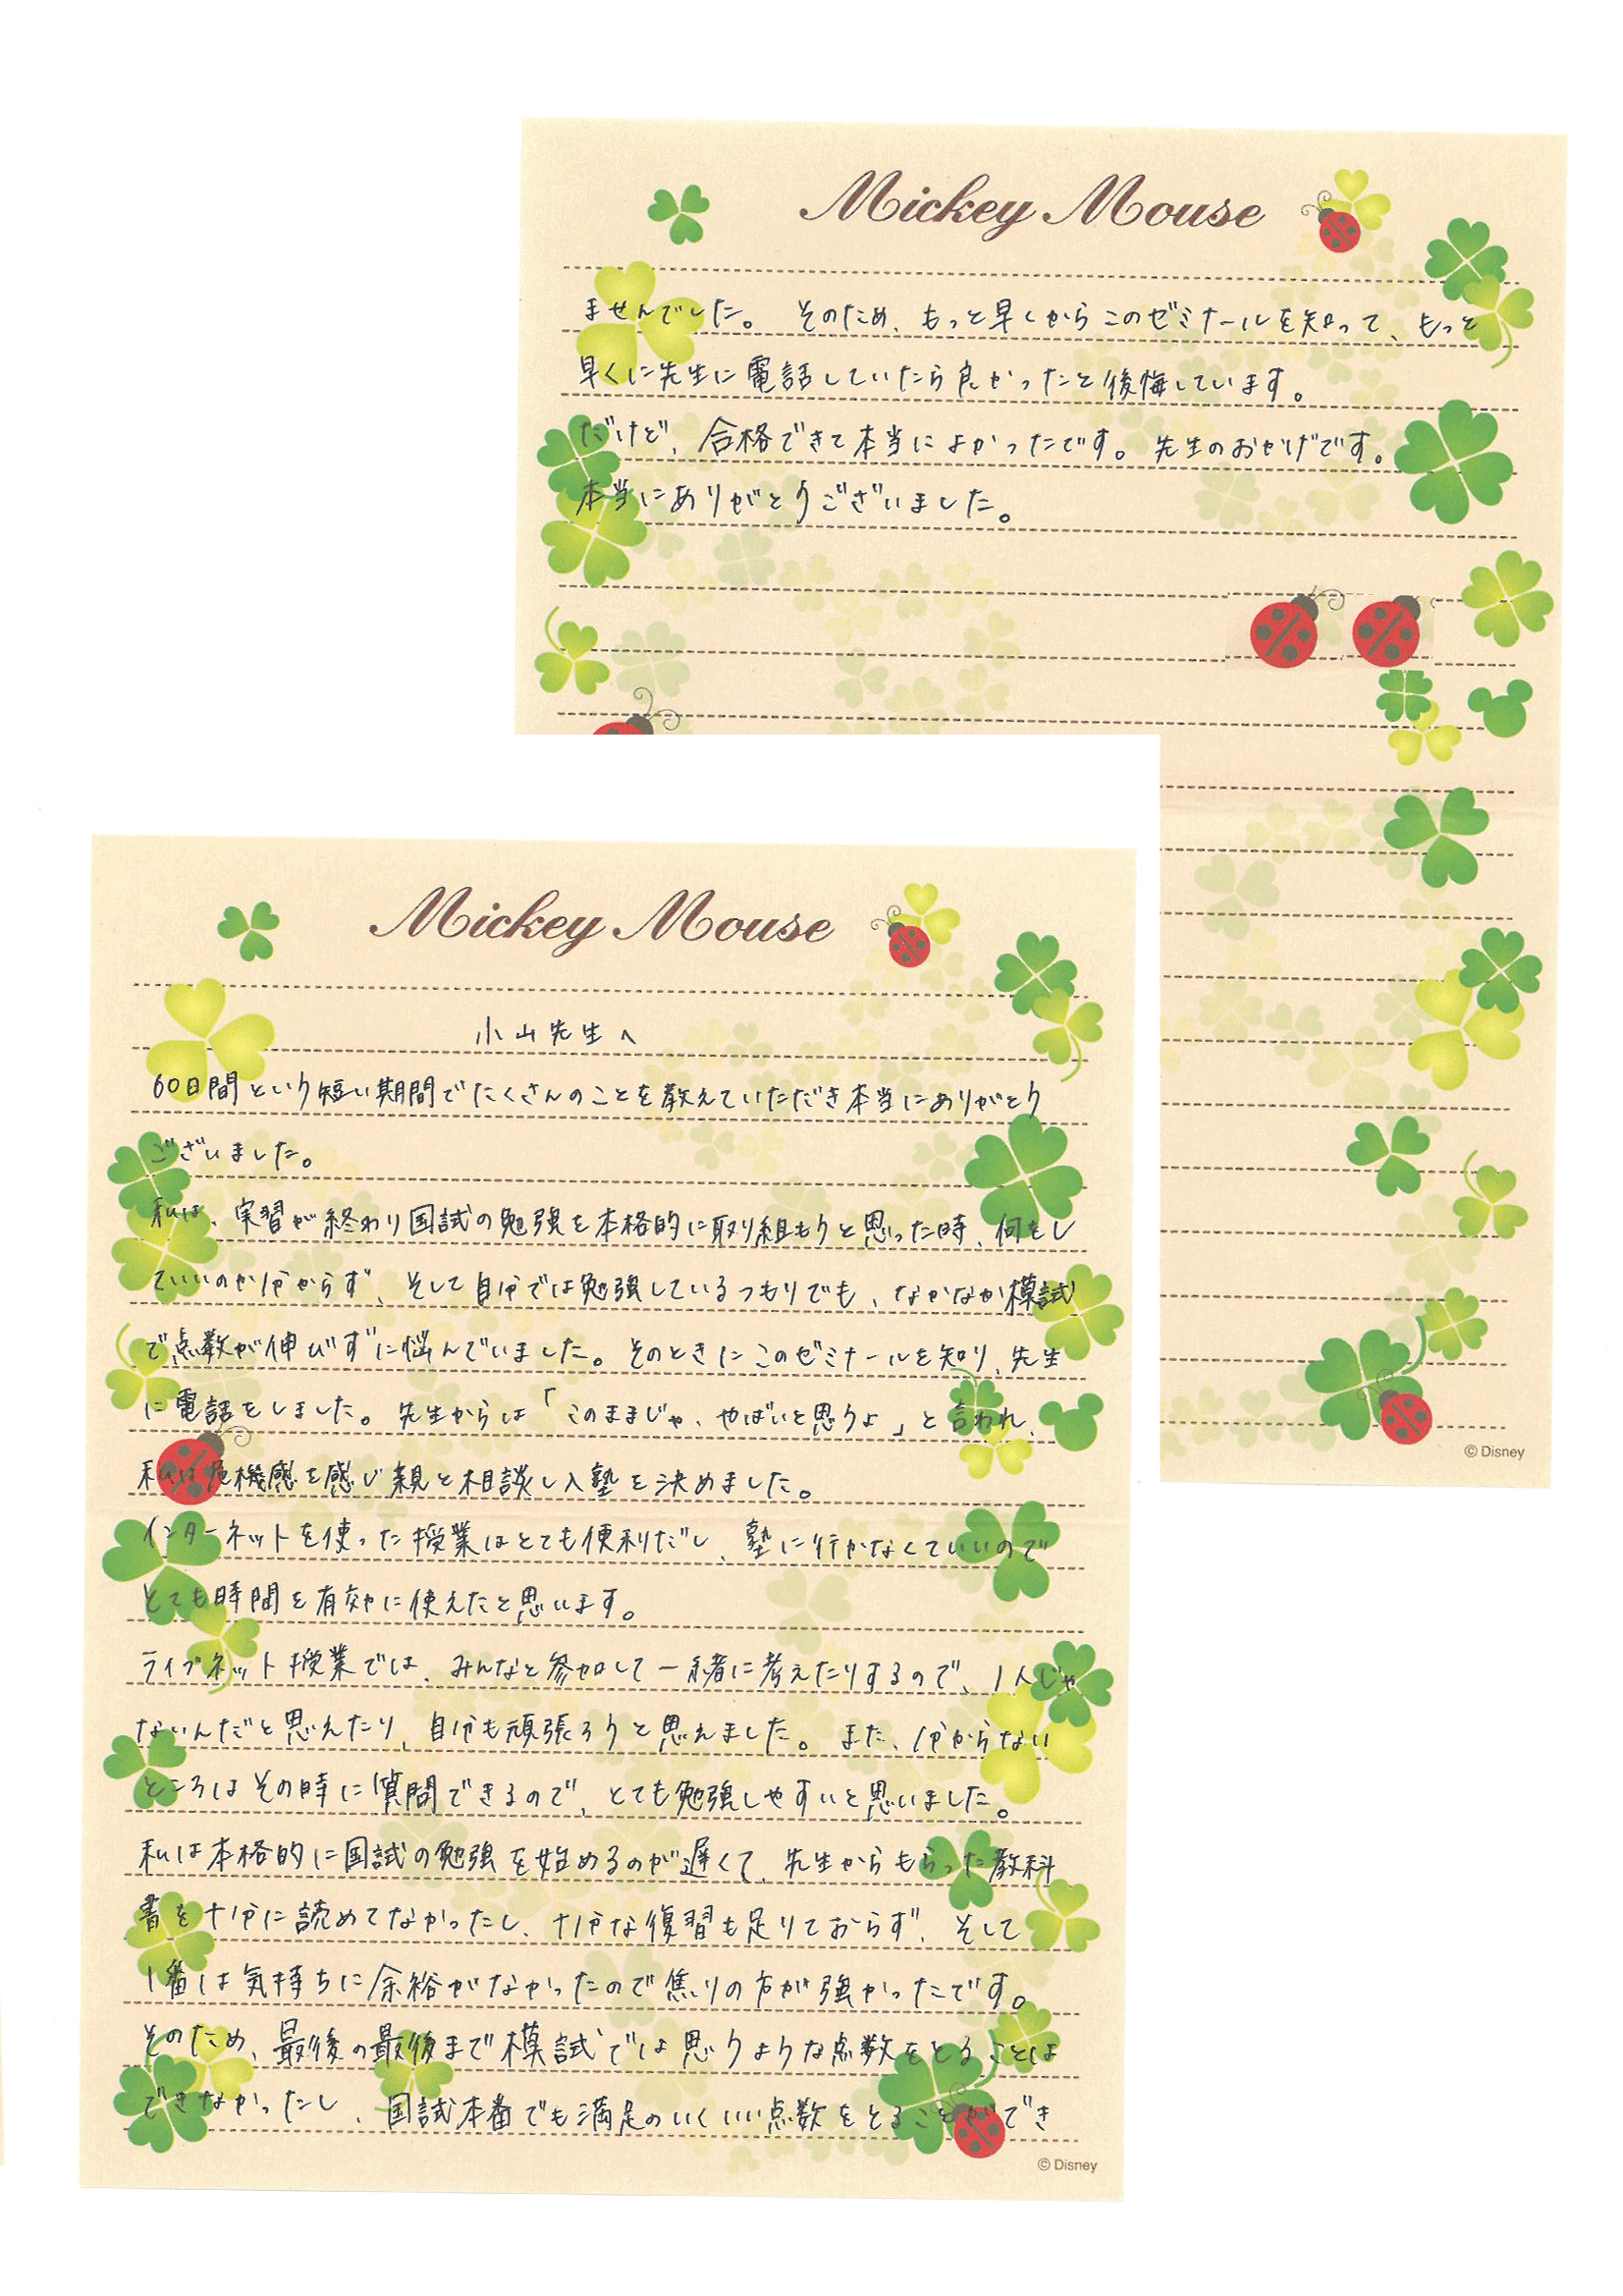 Mickey Mouse
小山先生へ
60日間という短い期間でたくさんのことを教えていただき本当にありがとう
ございました。
私は、実習が終わり国試の勉強を本格的に取り組もうと思った時、何をし
ていいのか分からず、そして自分では勉強しているつもりでも、なかなか模試
で点数が伸びずに悩んでいました。そのときにこのゼミナールを知り、先生
に電話をしました。先生からは「このままじゃ、やばいと思うよ」と言われ、
私は危機感を感じ親と相談し入塾を決めました。
インターネットを使った授業はとても便利だし、塾に行かなくていいので
とても時間を有効に使えたと思います。
ライブネット授業では、みんなと参加して一緒に考えたりするので、1人じゃ
ないんだと思えたり、自分も頑張ろうと思えました。また、分からない
ところはその時に質問できるので、とても勉強しやすいと思いました。
私は本格的に国試の勉強を始めるのが遅くて、先生からもらった教科
書を十分に読めてなかったし、十分な復習も足りておらず、そして
1番は気持ちに余裕がなかったので焦りの方が強かったです。
そのため、最後の最後まで模試では思うような点数をとることは
できなかったし、国試本番でも満足のいくいい点数をとることができ
© Disney
Mickey Mouse
ませんでした。 そのため、もっと早くからこのゼミナールを知って、もっと
早くに先生に電話していたら良かったと後悔しています。
だけど、合格できて本当によかったです。先生のおかげです。
本当にありがとうございました。
© Disney